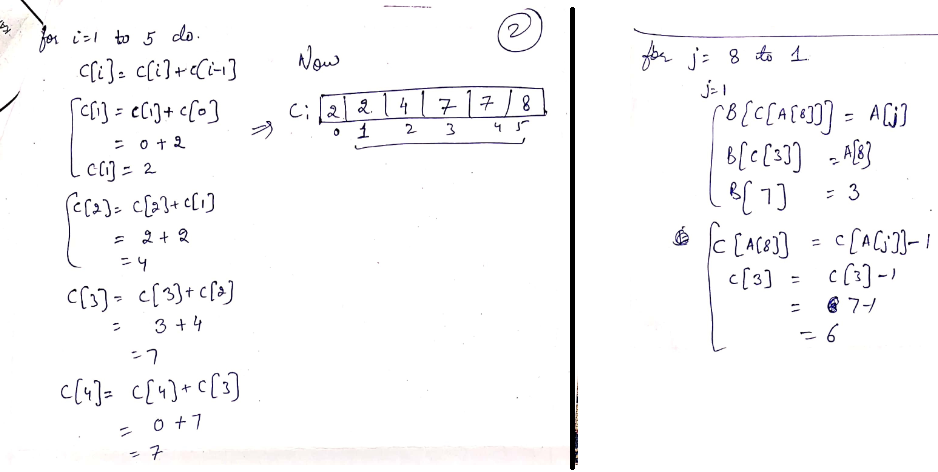 for i=1 to 5 do.
C[i] = C[i] + C[i-1]
C[1] = C[1] + C[0]
= 0 + 2
C[1] = 2
C[2] = C[2] + C[1]
= 2 + 2
= 4
C[3] = C[3] + C[2]
= 3 + 4
= 7
C[4] = C[4] + C[3]
= 0 + 7
= 7
2
Now
⇒ C: 2 2 4 7 7 8
0 1 2 3 4 5
for j = 8 to 1
j=1
B[C[A[8]]] = A[j]
B[C[3]] = A[8]
B[7] = 3
C[A[8]] = C[A[j]]-1
C[3] = C[3]-1
= 7-1
= 6